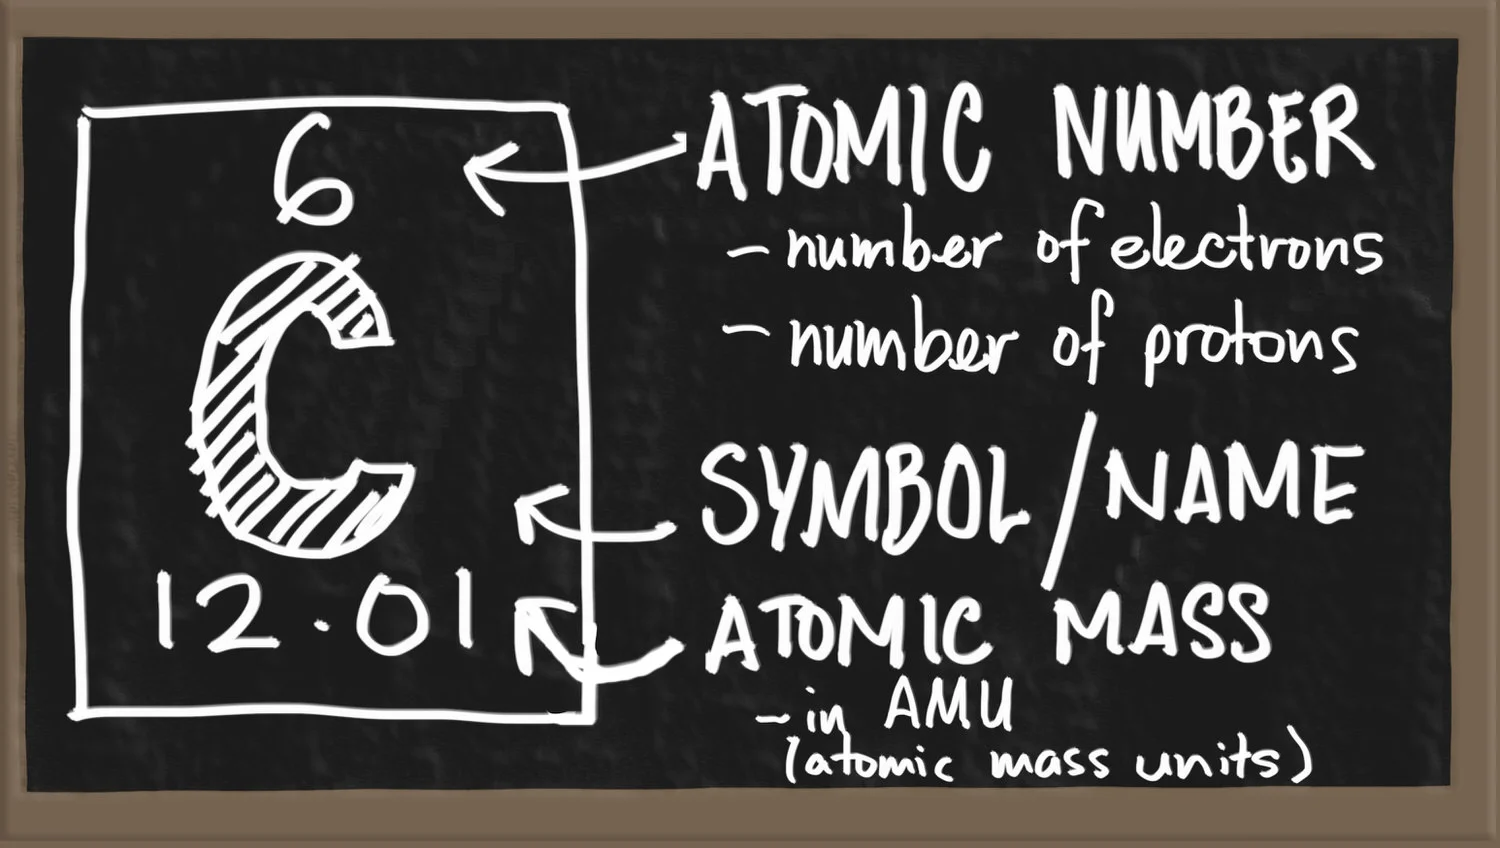 6
C
12.01
ATOMIC NUMBER
- number of electrons
- number of protons
SYMBOL/NAME
ATOMIC MASS
- in AMU
(atomic mass units)